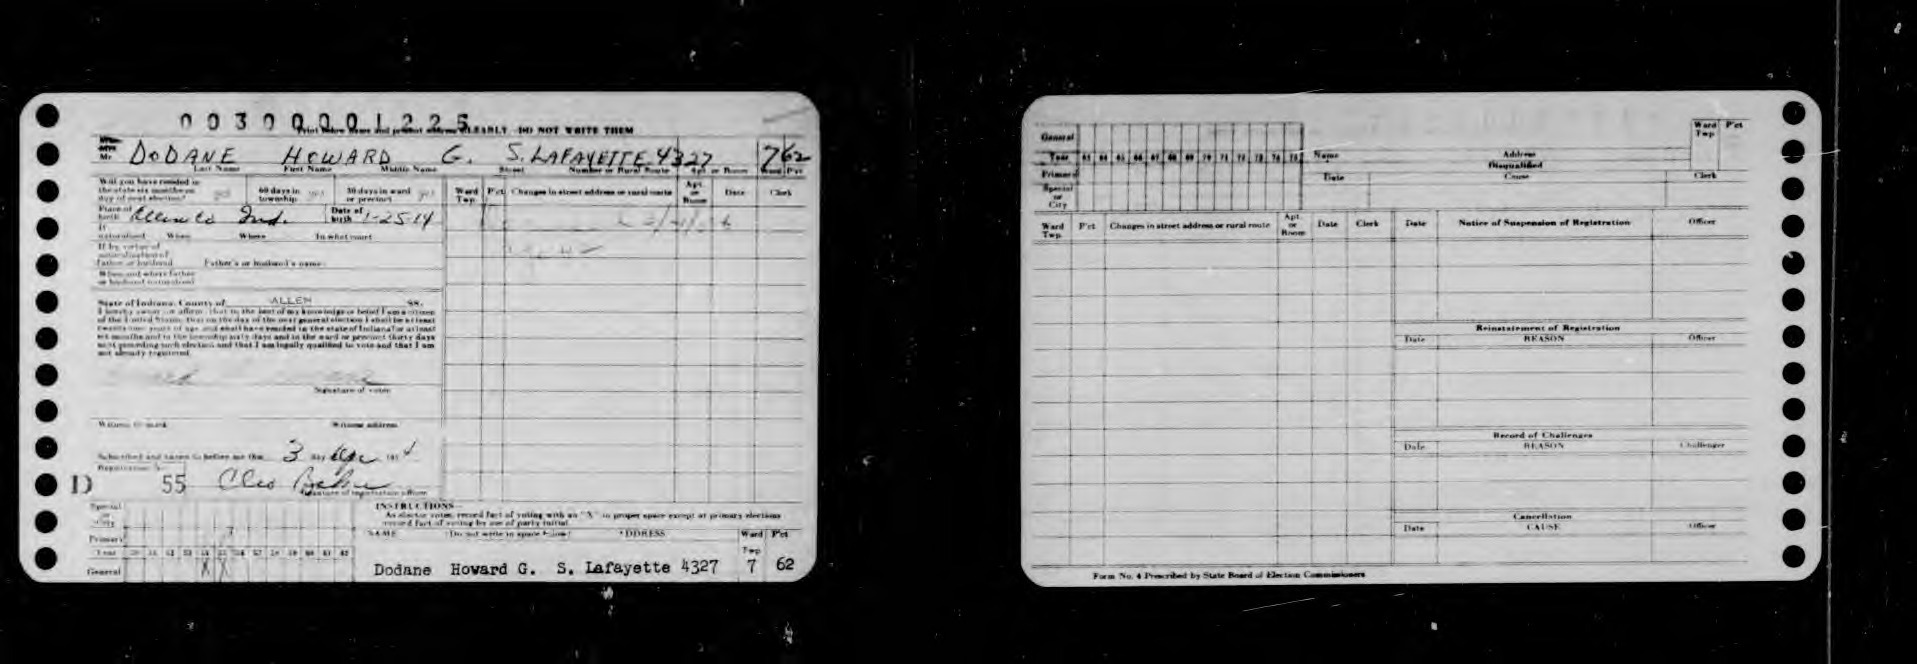 00300001225
Print below name and present address CLEARLY - DO NOT WRITE THEM
Mr. DODANE HOWARD G. S. LAFAYETTE 4327 7 62
Last Name First Name Middle Name Street Number or Rural Route Apt. or Room Ward P'ct
Will you have resided in
the state six months on
day of next election? yes 60 days in
township yes 30 days in ward
or precinct yes
Ward
Twp. P'ct Changes in street address or rural route Apt.
or
Room Date Clerk
Place of
birth Allen Co Ind. Date of
birth 1-25-14
If
naturalized When Where In what court
If by virtue of
naturalization of
father or husband Father's or husband's name
When and where father
or husband naturalized
State of Indiana, County of ALLEN SS.
I hereby swear (or affirm) that to the best of my knowledge or belief I am a citizen
of the United States, that on the day of the next general election I shall be at least
twenty-one years of age and shall have resided in the state of Indiana for at least
six months and in the township sixty days and in the ward or precinct thirty days
next preceding such election and that I am legally qualified to vote and that I am
not already registered.
Signature of voter
Witness to mark Witness address
Subscribed and sworn to before me this 3 day 4
Registration No.
D 55 Cleo
Signature of registration officer
Special
or
City
Primary
Year
General X X
INSTRUCTIONS—
As elector votes, record fact of voting with an "X" in proper space except at primary elections
record fact of voting by use of party initial.
NAME (Do not write in space below) ADDRESS Ward
Twp. P'ct
Dodane Howard G. S. Lafayette 4327 7 62
General
Year 63 64 65 66 67 68 69 70 71 72 73 74 75
Primary
Special
or
City
Name Address Ward
Twp P'ct
Disqualified
Date Cause Clerk
Ward
Twp. P'ct Changes in street address or rural route Apt.
or
Room Date Clerk
Date Notice of Suspension of Registration Officer
Reinstatement of Registration
Date REASON Officer
Record of Challenges
Date REASON Challenger
Cancellation
Date CAUSE Officer
Form No. 4 Prescribed by State Board of Election Commissioners